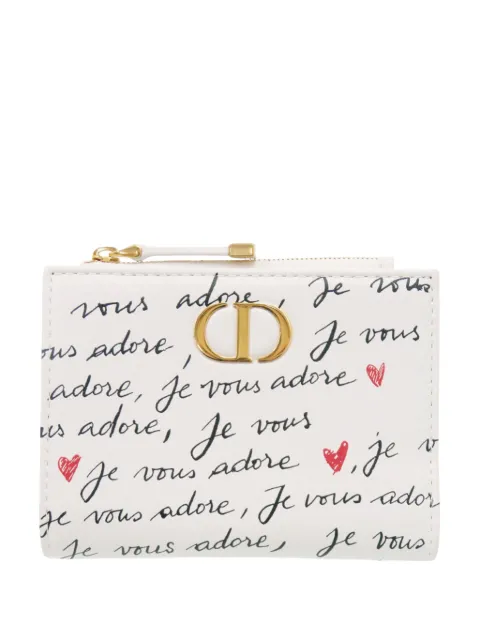 vous adore, Je vous
CD
ous adore, Je vous
adore, Je vous adore
us adore, Je vous
Je vous adore, je v
je vous adore, Je vous ador
Je vous adore, Je vous